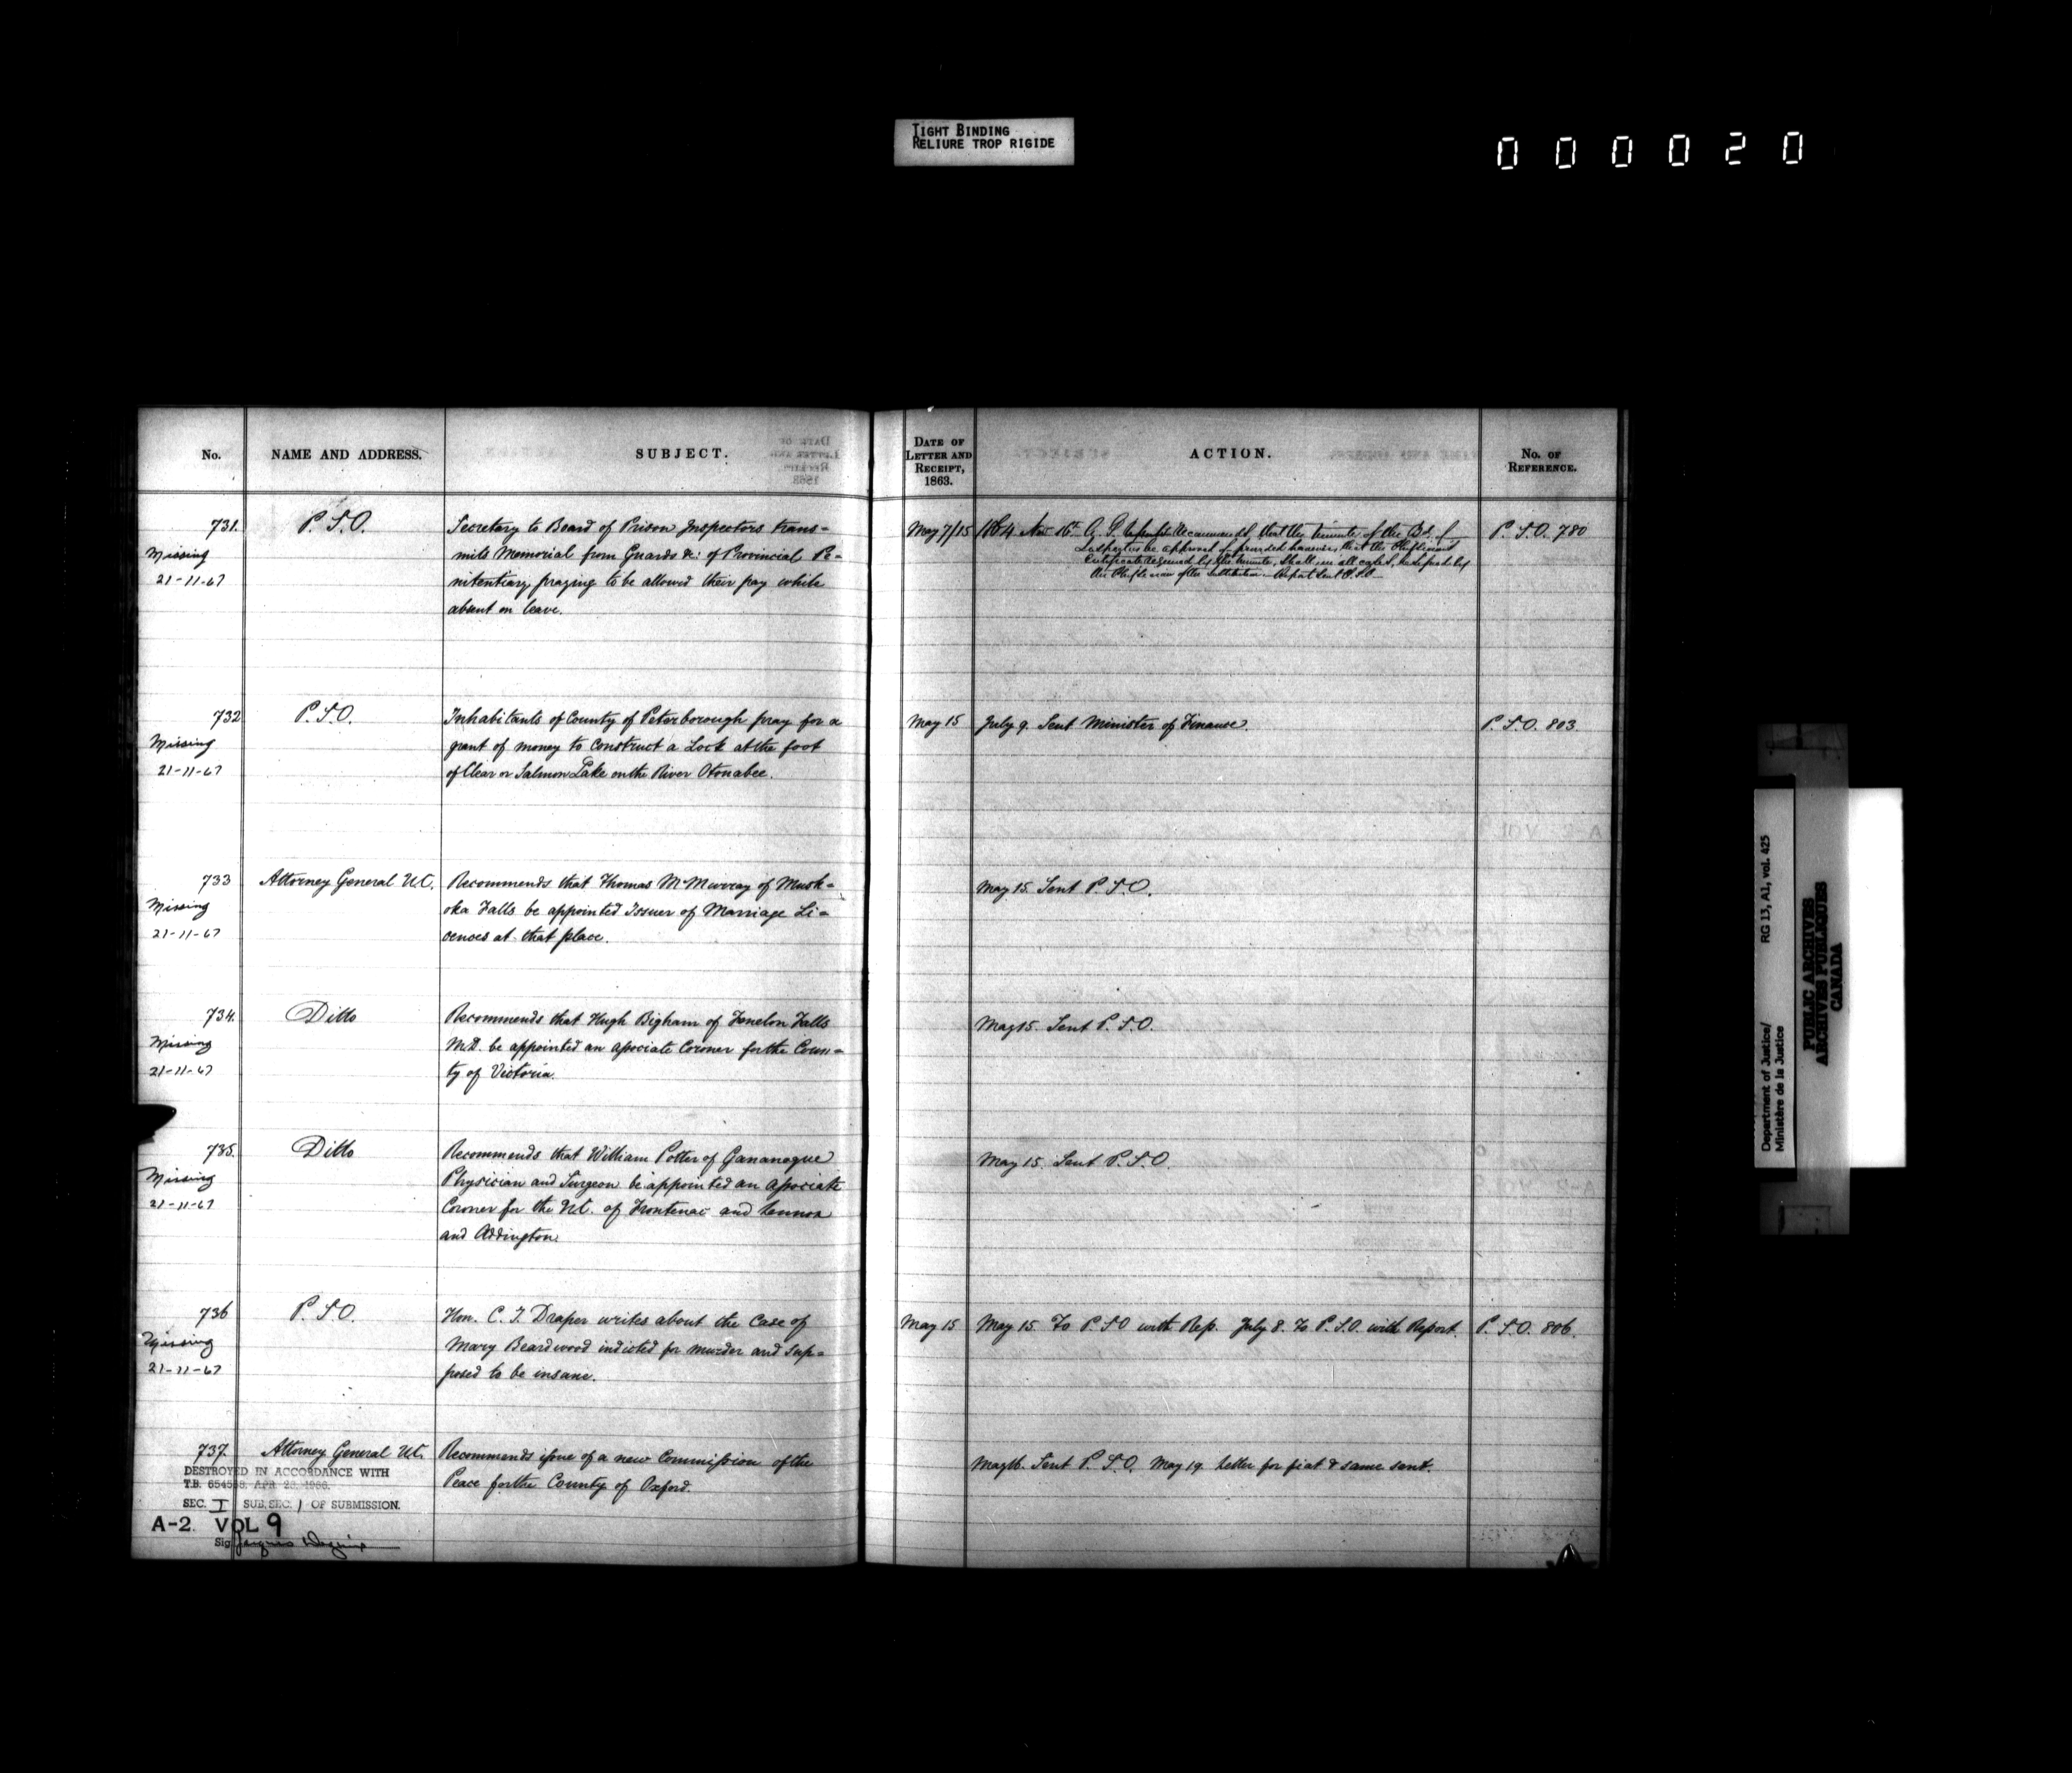 TIGHT BINDING
RELIURE TROP RIGIDE
000020
No. NAME AND ADDRESS. SUBJECT. DATE OF LETTER AND RECEIPT, 1863. ACTION. No. OF REFERENCE.
731. P.S.O. Secretary to Board of Prison Inspectors trans= May 7/15 1864 Nov 16th A. G. recommend that the minute of the Bd. of P.S.O. 780
Missing mits Memorial from Guards &c: of Provincial Pe= Inspectors be approved of provided however, that the
21-11-67 nitentiary, praying to be allowed their pay while Certificate required by the minute, shall in all cases, be
absent on leave. Report sent P.S.O.
732 P.S.O. Inhabitants of County of Peterborough pray for a May 15 July 9. Sent Minister of Finance. P.S.O. 803
Missing grant of money to construct a Lock at the foot
21-11-67 of Clear or Salmon Lake on the River Otonabee.
733 Attorney General U.C. Recommends that Thomas McMurray of Musk= May 15. Sent P.S.O.
Missing oka Falls be appointed Issuer of Marriage Li=
21-11-67 cences at that place.
734. Ditto Recommends that Hugh Bigham of Fenelon Falls May 15. Sent P.S.O.
Missing M.D. be appointed an associate Coroner for the Coun=
21-11-67 ty of Victoria.
735. Ditto Recommends that William Potter of Gananoque May 15. Sent P.S.O.
Missing Physician and Surgeon be appointed an associate
21-11-67 Coroner for the U.C. of Frontenac and Lennox
and Addington.
736 P.S.O. Hon. C. J. Draper writes about the case of May 15 May 15. To P.S.O with Rep. July 8. To P.S.O. with Report. P.S.O. 806.
Missing Mary Beardwood indicted for murder and sup=
21-11-67 posed to be insane.
737. Attorney General U.C. Recommends issue of a new Commission of the May 16. Sent P.S.O. May 19. Letter for fiat & same sent.
Peace for the County of Oxford.
DESTROYED IN ACCORDANCE WITH
T.B. 654558 APR 28 1966
SEC. I SUB.SEC. 1 OF SUBMISSION.
A-2. VOL 9
Sig Jacques
Department of Justice/ RG 13, A1, vol. 425
Ministère de la Justice
PUBLIC ARCHIVES
ARCHIVES PUBLIQUES
CANADA